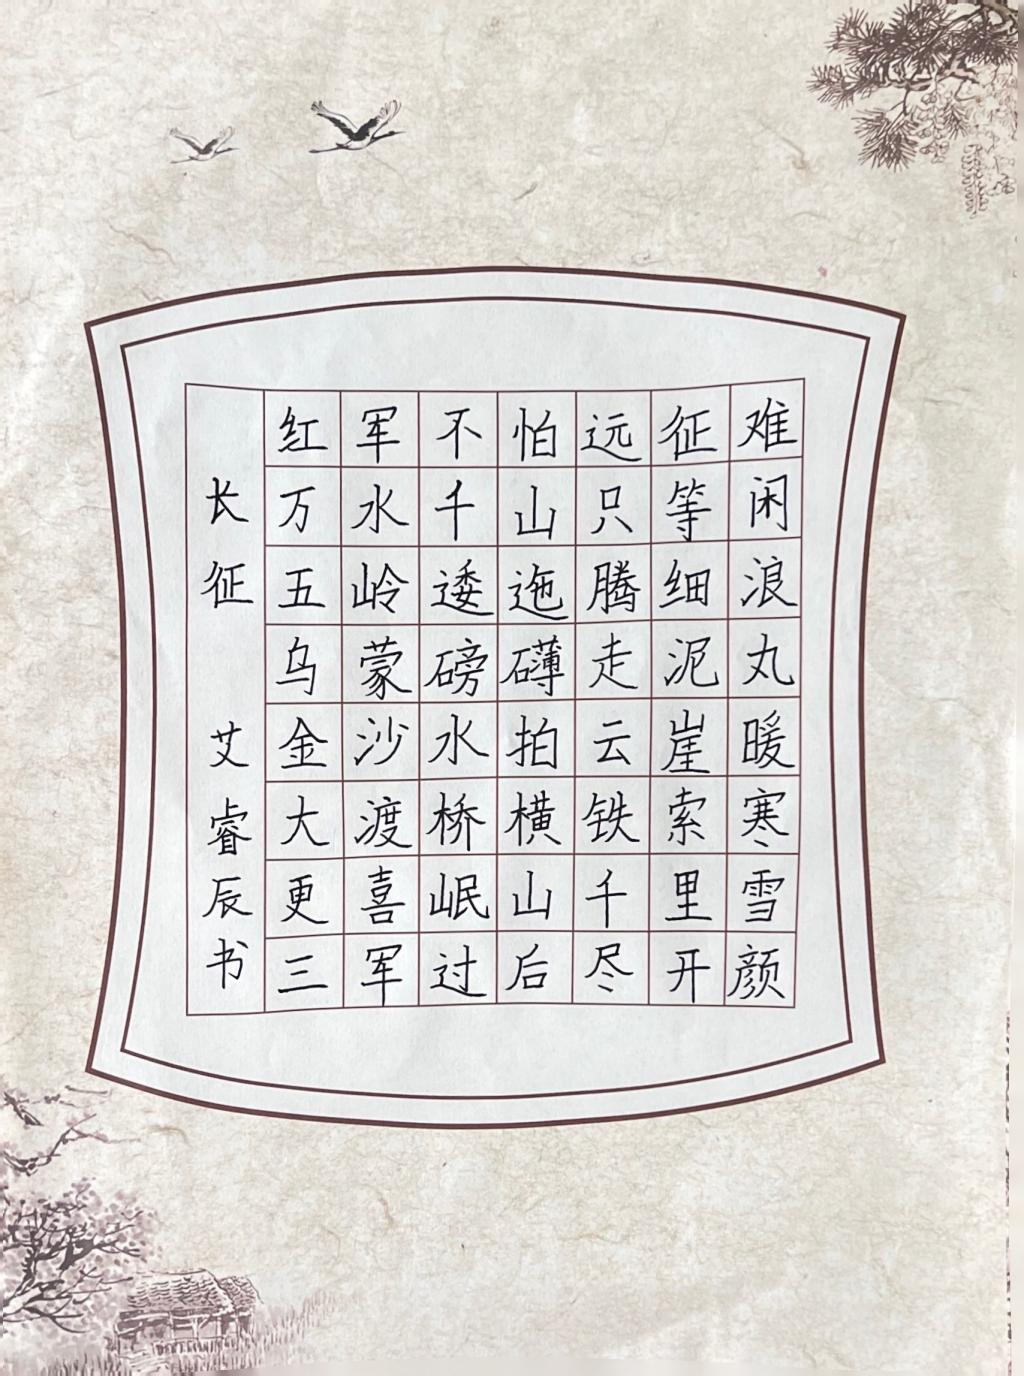 红军不怕远征难
万水千山只等闲
五岭逶迤腾细浪
乌蒙磅礴走泥丸
金沙水拍云崖暖
大渡桥横铁索寒
更喜岷山千里雪
三军过后尽开颜
长征 艾睿辰书